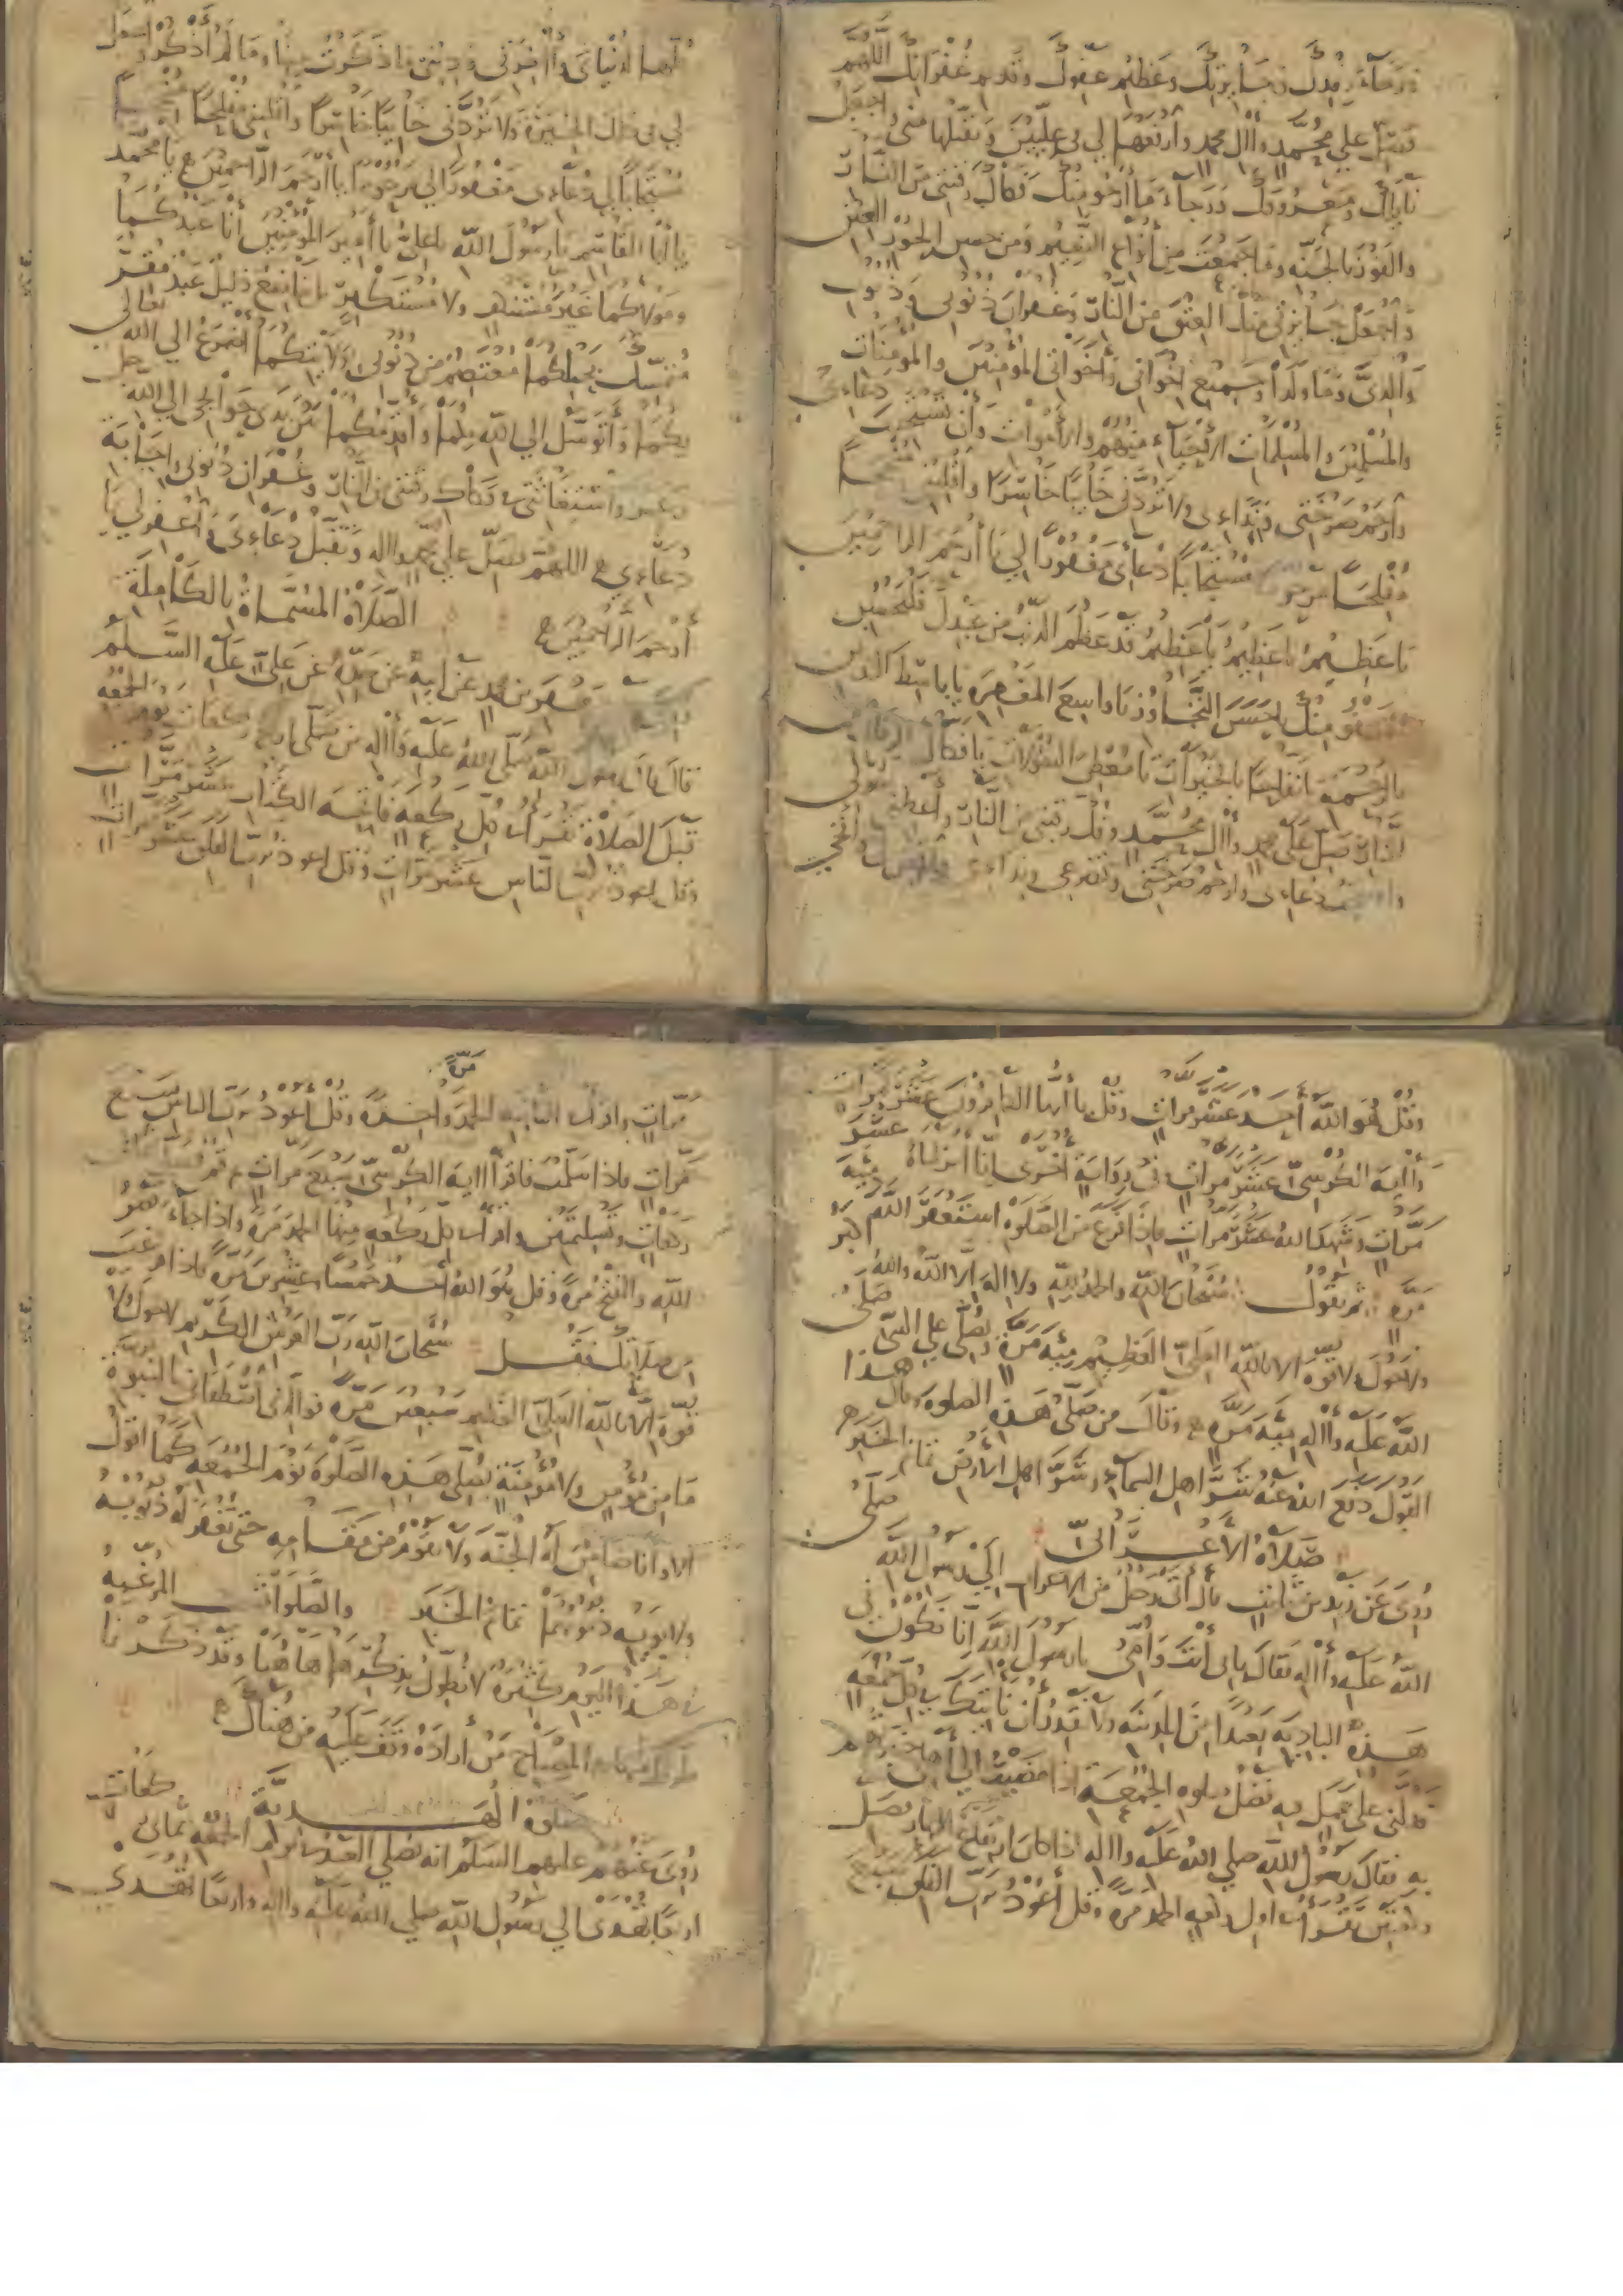 ورجاء رفدك وجايزتك وعظيم عفوك وقديم غفرانك اللهم
فصل علي محمد وآل محمد وارفعها لي في عليين وتقبلها مني واجعل
نايلك ومعروفك ورجاء ما أرجو منك فكاك رقبتي من النار
والفوز بالجنة وما جمعت من أنواع النعيم ومن حسن الحور العين
واجعل جايزتي منك العتق من النار وغفران ذنوبي وذنوب
والدي وما ولدا وجميع اخواني وأخواتي المؤمنين والمؤمنات
والمسلمين والمسلمات الأحياء منهم والأموات وأن تستجيب دعاءي
وارحم صرختي ونداءي ولا تردني خايبا خاسرا واقلبني منجحا
مفلحا مرحوما مستجابا دعاءي مغفورا لي يا أرحم الراحمين
يا عظيم يا عظيم يا عظيم قد عظم الذنب من عبدك فليحسن
العفو منك يا حسن التجاوز يا واسع المغفرة يا باسط اليدين
بالرحمة يا نفاحا بالخيرات يا معطي السؤلات يا فكاك الرقاب من
النار صل على محمد وآل محمد وفك رقبتي من النار وأعطني سؤلي
واستجب دعاءي وارحم صرختي وتضرعي ونداءي
كلها لدنياي وآخرتي وديني ما ذكرت منها وما لم أذكر واجعل
لي في ذلك الخيرة ولا تردني خايبا خاسرا واقلبني مفلحا منجحا
مستجابا لي دعاءي مغفورا لي مرحوما يا أرحم الراحمين يا محمد
يا أبا القاسم يا رسول الله يا علي يا أمير المؤمنين أنا عبدكما
ومولاكما غير مستنكف ولا مستكبر بل خاضع ذليل عبد مقر
متمسك بحبلكما معتصم من ذنوبي بولايتكما أتضرع الي الله تعالي
بكما وأتوسل الي الله بكما وأقدمكما بين يدي حوائجي الي الله جل
وعز واشفعا لي في فكاك رقبتي من النار وغفران ذنوبي واجابة
دعاءي اللهم فصل علي محمد وآله وتقبل دعاءي واغفر لي يا
أرحم الراحمين الصلاة المسماة بالكاملة
جعفر بن محمد عن ابيه عن جده عن علي عليه السلم
قال قال رسول الله صلى الله عليه وآله من صلى اربع ركعات يوم الجمعة
قبل الصلاة تقرأ في كل ركعة فاتحة الكتاب عشر مرات
وقل اعوذ برب الناس عشر مرات وقل اعوذ برب الفلق عشر مرات
وقل هو الله أحد عشر مرات وقل يا أيها الكافرون عشر مرات
وآية الكرسي عشر مرات وفي رواية أخرى إنا أنزلناه عشر
مرات وشهد الله عشر مرات فإذا فرغ من الصلوة استغفر الله مئة
مرة ثم يقول سبحان الله والحمد لله ولا اله الا الله والله اكبر
ولا حول ولا قوة الا بالله العلي العظيم مئة مرة ويصلي علي النبي صلى
الله عليه وآله مئة مرة وقال من صلى هذه الصلوة وقال هذا
القول دفع الله عنه شر اهل السماء وشر اهل الأرض تمام الخبر
صلاة الأعرابي
روى عن زيد بن ثابت قال أتى رجل من الاعراب إلى رسول الله صلى
الله عليه وآله فقال بابي أنت وأمي يا رسول الله انا نكون في
هذه البادية بعيدا من المدينة ولا نقدر ان نأتيك في كل جمعة
فدلني على عمل فيه فضل صلوة الجمعة اذا مضيت الى أهلي
به فقال رسول الله صلي الله عليه وآله اذا كان ارتفاع النهار فصل
ركعتين تقرأ في اول ركعة الحمد مرة وقل أعوذ برب الفلق سبع
مرات واقرأ في الثانية الحمد مرة واحدة وقل أعوذ برب الناس سبع
مرات فاذا سلمت فاقرأ آية الكرسي سبع مرات ثم قم فصل ثماني
ركعات وتسليمتين واقرأ في كل ركعة منها الحمد مرة واذا جاء نصر
الله والفتح مرة وقل هو الله أحد خمسا وعشرين مرة فاذا فرغت
من صلاتك فقل سبحان الله رب العرش الكريم لا حول ولا
قوة الا بالله العلي العظيم سبعين مرة فوالذي أصطفاني بالنبوة
ما من مؤمن ولا مؤمنة يصلي هذه الصلوة يوم الجمعة كما اقول
الا وانا ضامن له الجنة ولا يقوم من مقامه حتى يغفر له ذنوبه
ولأبويه ذنوبهما تمام الخبر والصلوات المرغبة
في هذا اليوم كثيرة لا نطول بذكرها هاهنا وقد ذكرنا
المصباح من أراده وقف عليه من هناك
صلوة الهدية
روى عنهم عليهم السلم انه يصلي العبد في يوم الجمعة ثماني ركعات
اربعا تهدى الي رسول الله صلي الله عليه وآله واربعا تهدى